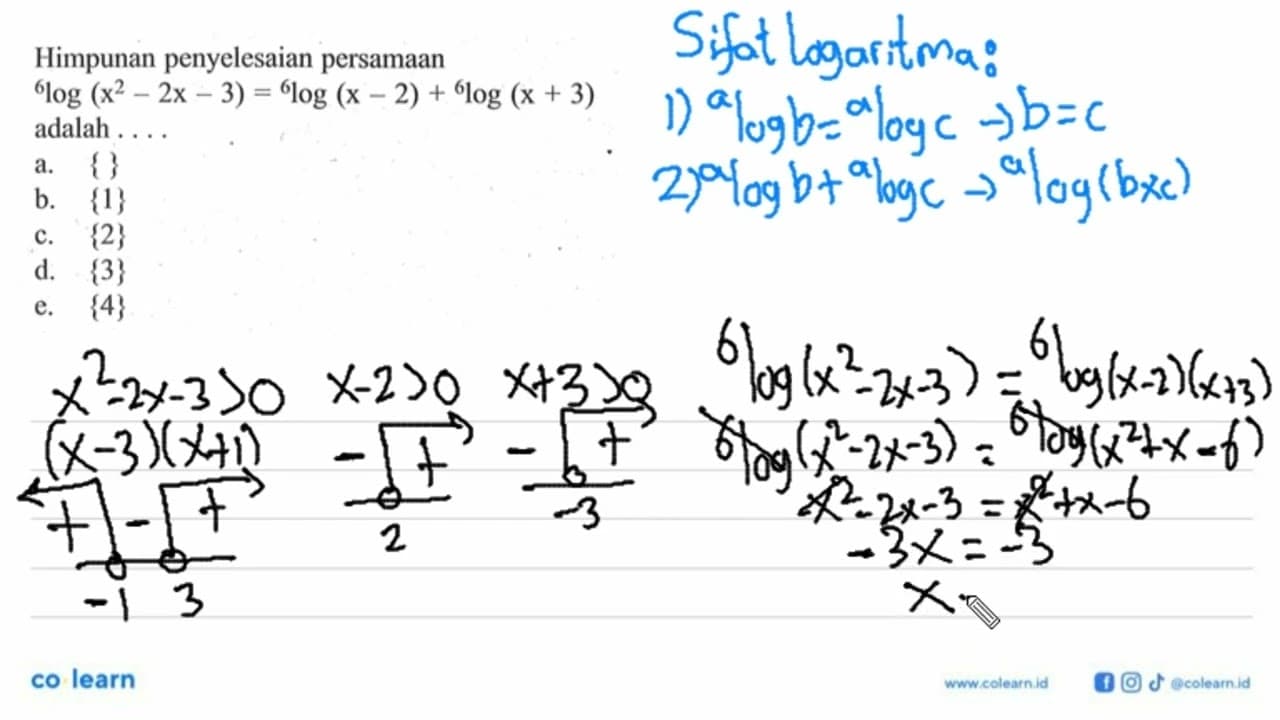 Himpunan penyelesaian persamaan
⁶log (x² – 2x – 3) = ⁶log (x – 2) + ⁶log (x + 3)
adalah . . . .
a. { }
b. {1}
c. {2}
d. {3}
e. {4}
Sifat logaritma:
1) ᵃlog b = ᵃlog c → b = c
2) ᵃlog b + ᵃlog c → ᵃlog(b×c)
x²-2x-3>0
(x-3)(x+1)
+ - +
-1 3
x-2>0
- +
2
x+3>0
- +
-3
⁶log(x²-2x-3) = ⁶log(x-2)(x+3)
⁶log(x²-2x-3) = ⁶log(x²+x-6)
x²-2x-3 = x²+x-6
-3x = -3
x
co learn
www.colearn.id
@colearn.id